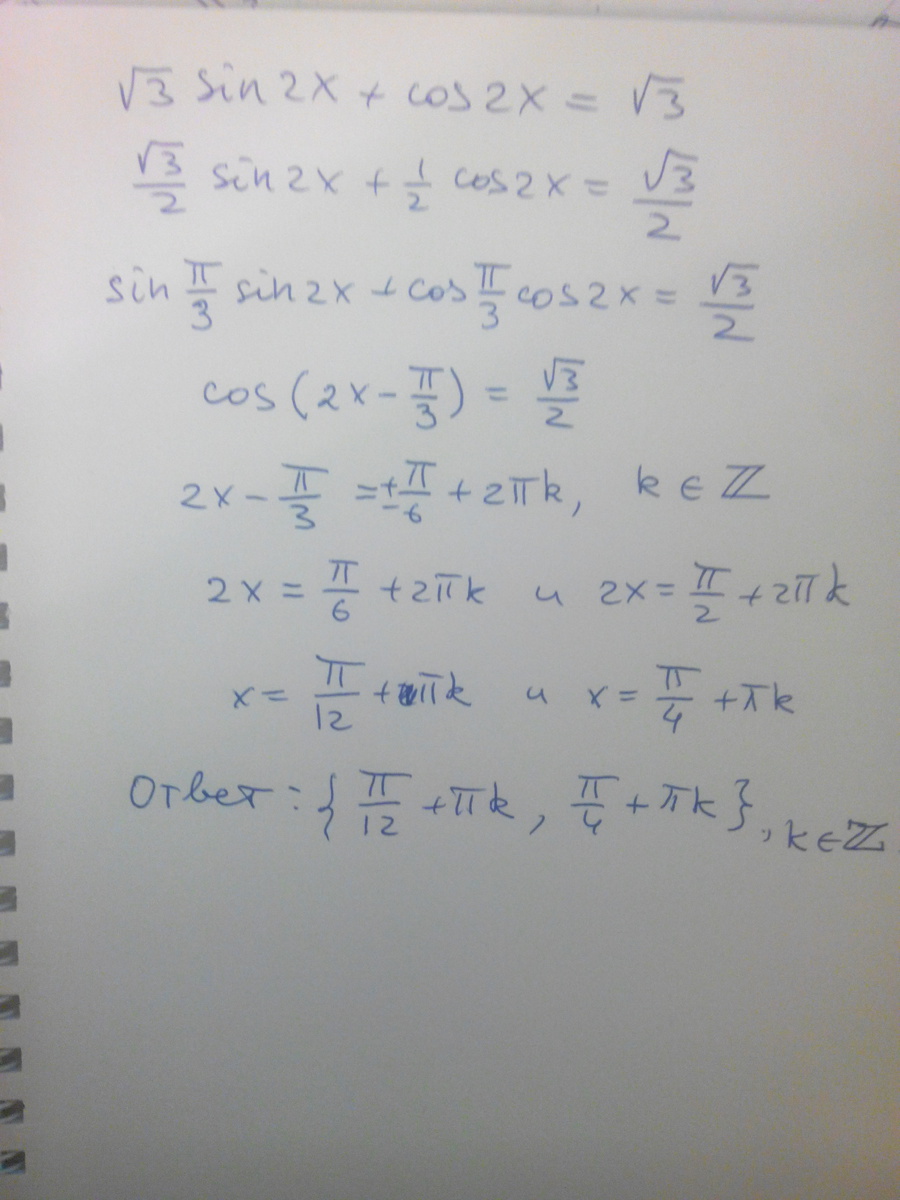 √3 sin2x + cos2x = √3
√3/2 sin2x + 1/2 cos2x = √3/2
sin π/3 sin2x + cos π/3 cos2x = √3/2
cos(2x - π/3) = √3/2
2x - π/3 = ± π/6 + 2πk, k ∈ ℤ
2x = π/6 + 2πk и 2x = π/2 + 2πk
x = π/12 + πk и x = π/4 + πk
Ответ: { π/12 + πk, π/4 + πk }, k ∈ ℤ